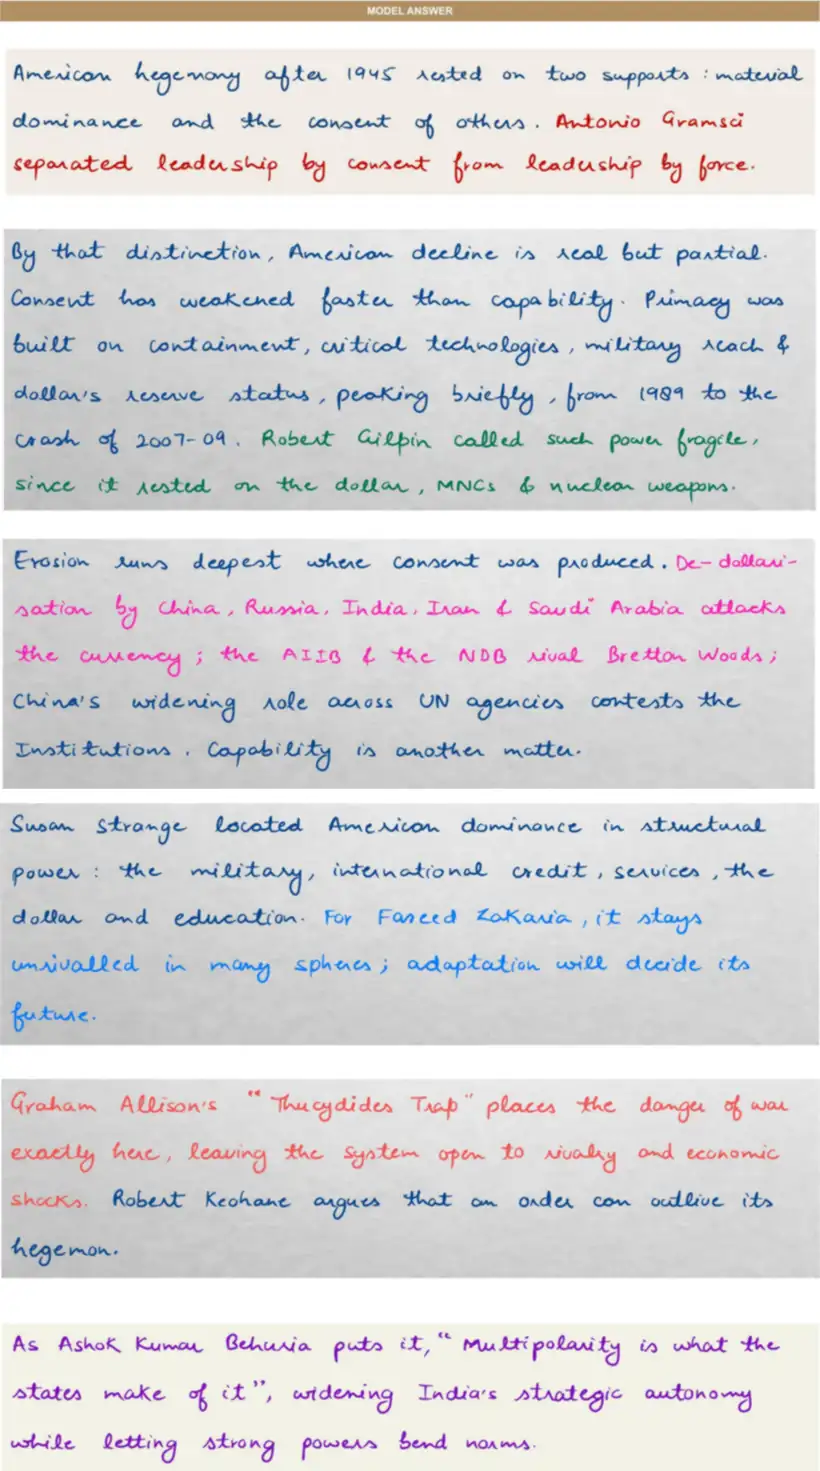 MODEL ANSWER
American hegemony after 1945 rested on two supports : material
dominance and the consent of others. Antonio Gramsci
separated leadership by consent from leadership by force.
By that distinction, American decline is real but partial.
Consent has weakened faster than capability. Primacy was
built on containment, critical technologies, military reach &
dollar's reserve status, peaking briefly, from 1989 to the
crash of 2007-09. Robert Gilpin called such power fragile,
since it rested on the dollar, MNCs & nuclear weapons.
Erosion runs deepest where consent was produced. De-dollari-
sation by China, Russia, India, Iran & Saudi Arabia attacks
the currency; the AIIB & the NDB rival Bretton Woods;
China's widening role across UN agencies contests the
Institutions. Capability is another matter.
Susan Strange located American dominance in structural
power : the military, international credit, services, the
dollar and education. For Fareed Zakaria, it stays
unrivalled in many spheres; adaptation will decide its
future.
Graham Allison's "Thucydides Trap" places the danger of war
exactly here, leaving the system open to rivalry and economic
shocks. Robert Keohane argues that an order can outlive its
hegemon.
As Ashok Kumar Behuria puts it, "Multipolarity is what the
states make of it", widening India's strategic autonomy
while letting strong powers bend norms.